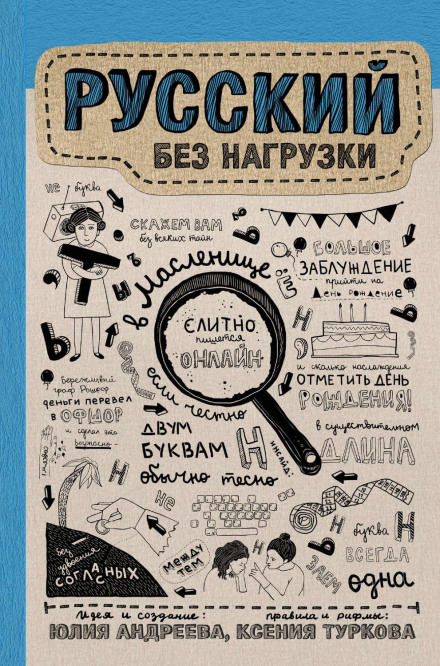 РУССКИЙ
БЕЗ НАГРУЗКИ
не буква
Т
СКАЖЕМ ВАМ
без всяких тайн
в Масленице
СЛИТНО
пишется
ОНЛАЙН
БОЛЬШОЕ
ЗАБЛУЖДЕНИЕ
прийти на
День рождение
и сколько наслаждения
ОТМЕТИТЬ ДЕНЬ
РОЖДЕНИЯ!
Бережливый
граф Рошфор
деньги перевел
в ОФШОР
и сделал это
если честно
ДВУМ
БУКВАМ
Н Н
обычно тесно
в существительном
ДЛИНА
инсайд:
не
без удвоения
СОГЛАСНЫХ
между
тем
Н
ЗАЕМ
буква Н
ВСЕГДА
одна
Идея и создание: правила и рифмы:
ЮЛИЯ АНДРЕЕВА, КСЕНИЯ ТУРКОВА